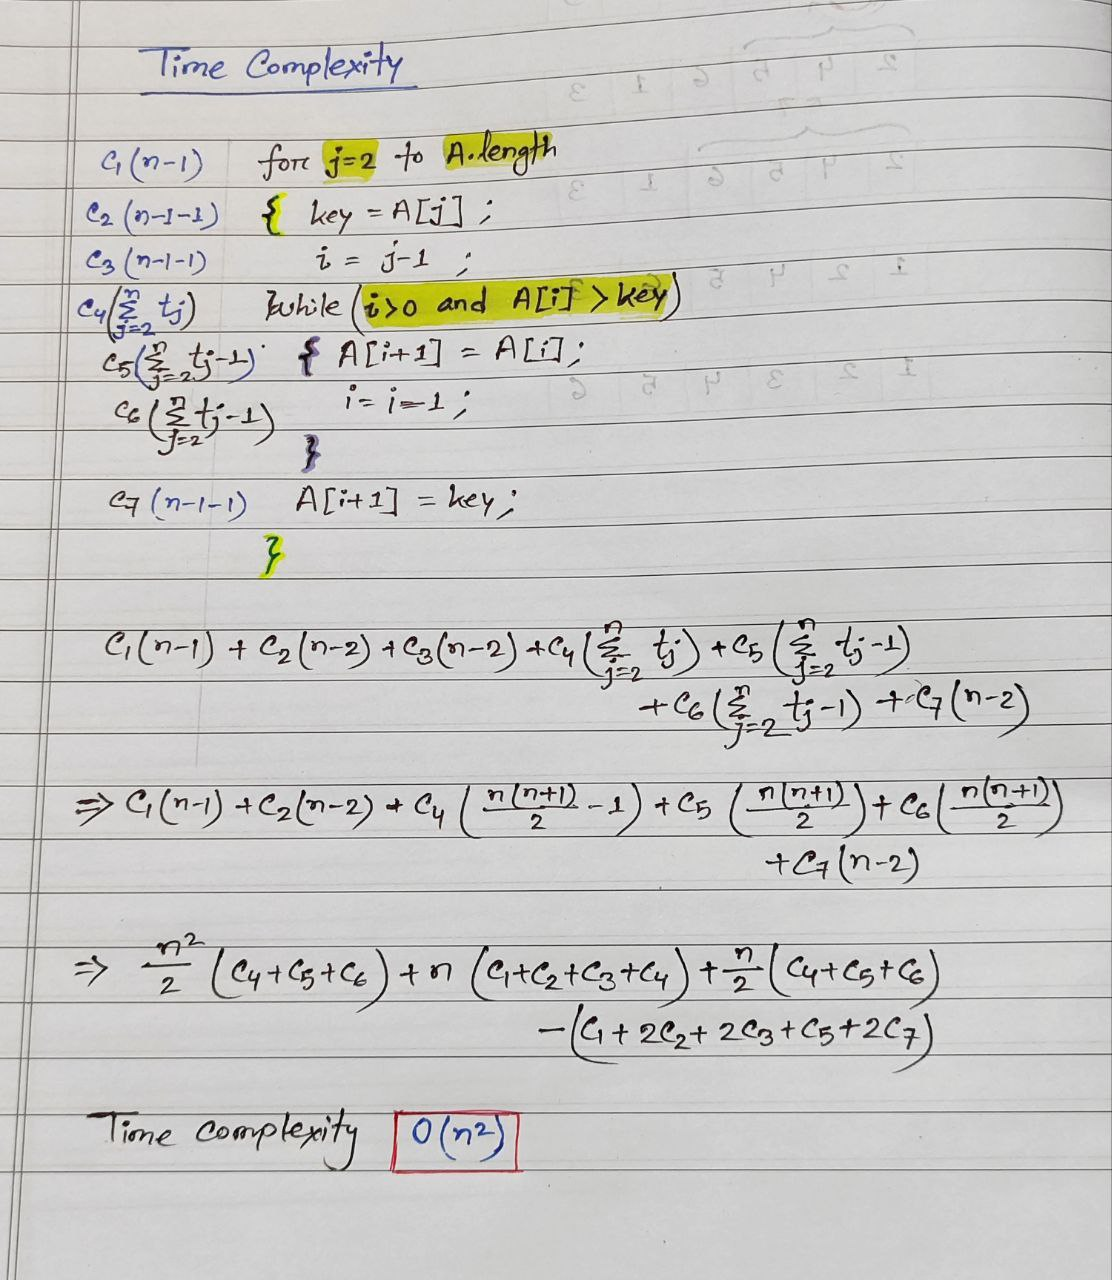 Time Complexity
C₁(n-1) for j=2 to A.length
C₂(n-1-1) { key = A[j] ;
C₃(n-1-1) i = j-1 ;
C₄(∑ⁿⱼ₌₂ tj) while (i>0 and A[i] > key)
C₅(∑ⁿⱼ₌₂ tj-1) { A[i+1] = A[i];
C₆(∑ⁿⱼ₌₂ tj-1) i = i-1 ;
}
C₇(n-1-1) A[i+1] = key ;
}
C₁(n-1) + C₂(n-2) + C₃(n-2) + C₄(∑ⁿⱼ₌₂ tj) + C₅(∑ⁿⱼ₌₂ tj-1)
+ C₆(∑ⁿⱼ₌₂ tj-1) + C₇(n-2)
⇒ C₁(n-1) + C₂(n-2) + C₄(n(n+1)/2 - 1) + C₅(n(n+1)/2) + C₆(n(n+1)/2)
+ C₇(n-2)
⇒ n²/2 (C₄+C₅+C₆) + n (C₁+C₂+C₃+C₄) + n/2 (C₄+C₅+C₆)
-(C₁+2C₂+2C₃+C₅+2C₇)
Time complexity O(n²)